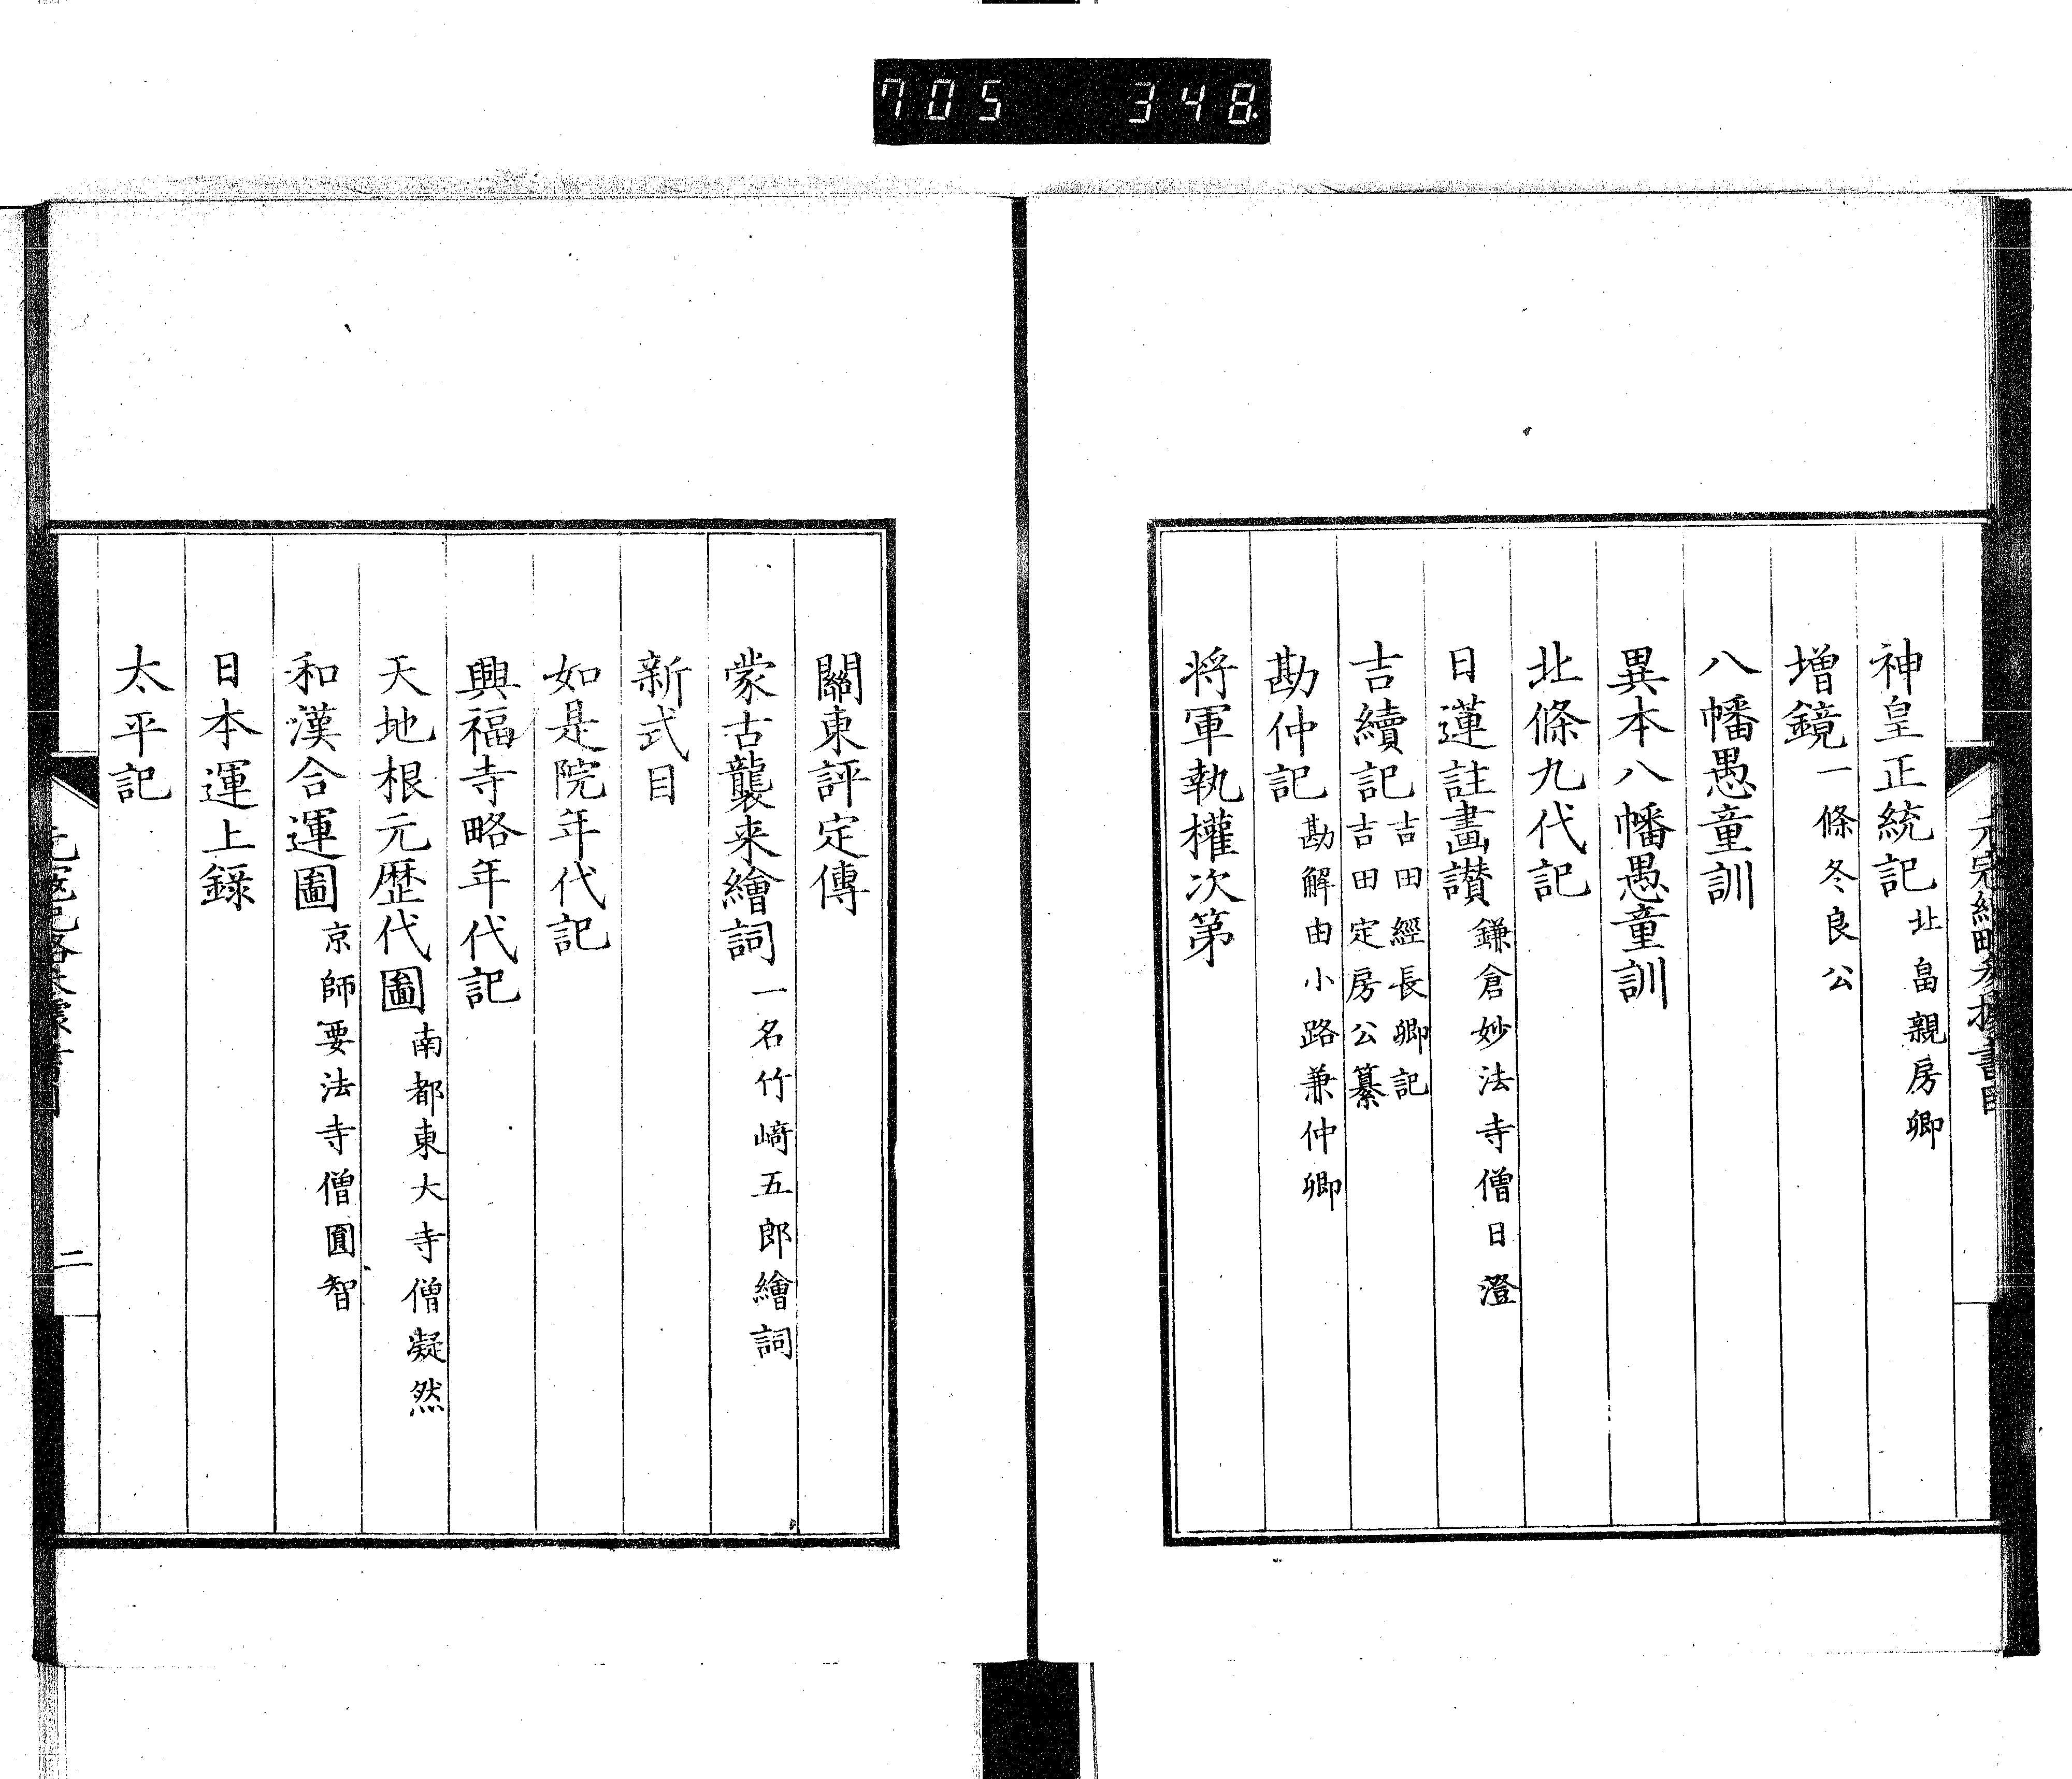 705 348
神皇正統記 北畠親房卿
增鏡 一條冬良公
八幡愚童訓
異本八幡愚童訓
北條九代記
日蓮註畫讃 鎌倉妙法寺僧日澄
吉續記 吉田經長卿記
吉田定房公纂
勘仲記 勘解由小路兼仲卿
将軍執權次第
關東評定傳
蒙古襲来繪詞 一名竹﨑五郎繪詞
新式目
如是院年代記
興福寺略年代記
天地根元歴代圖 南都東大寺僧凝然
和漢合運圖 京師要法寺僧圓智
日本運上録
太平記
二